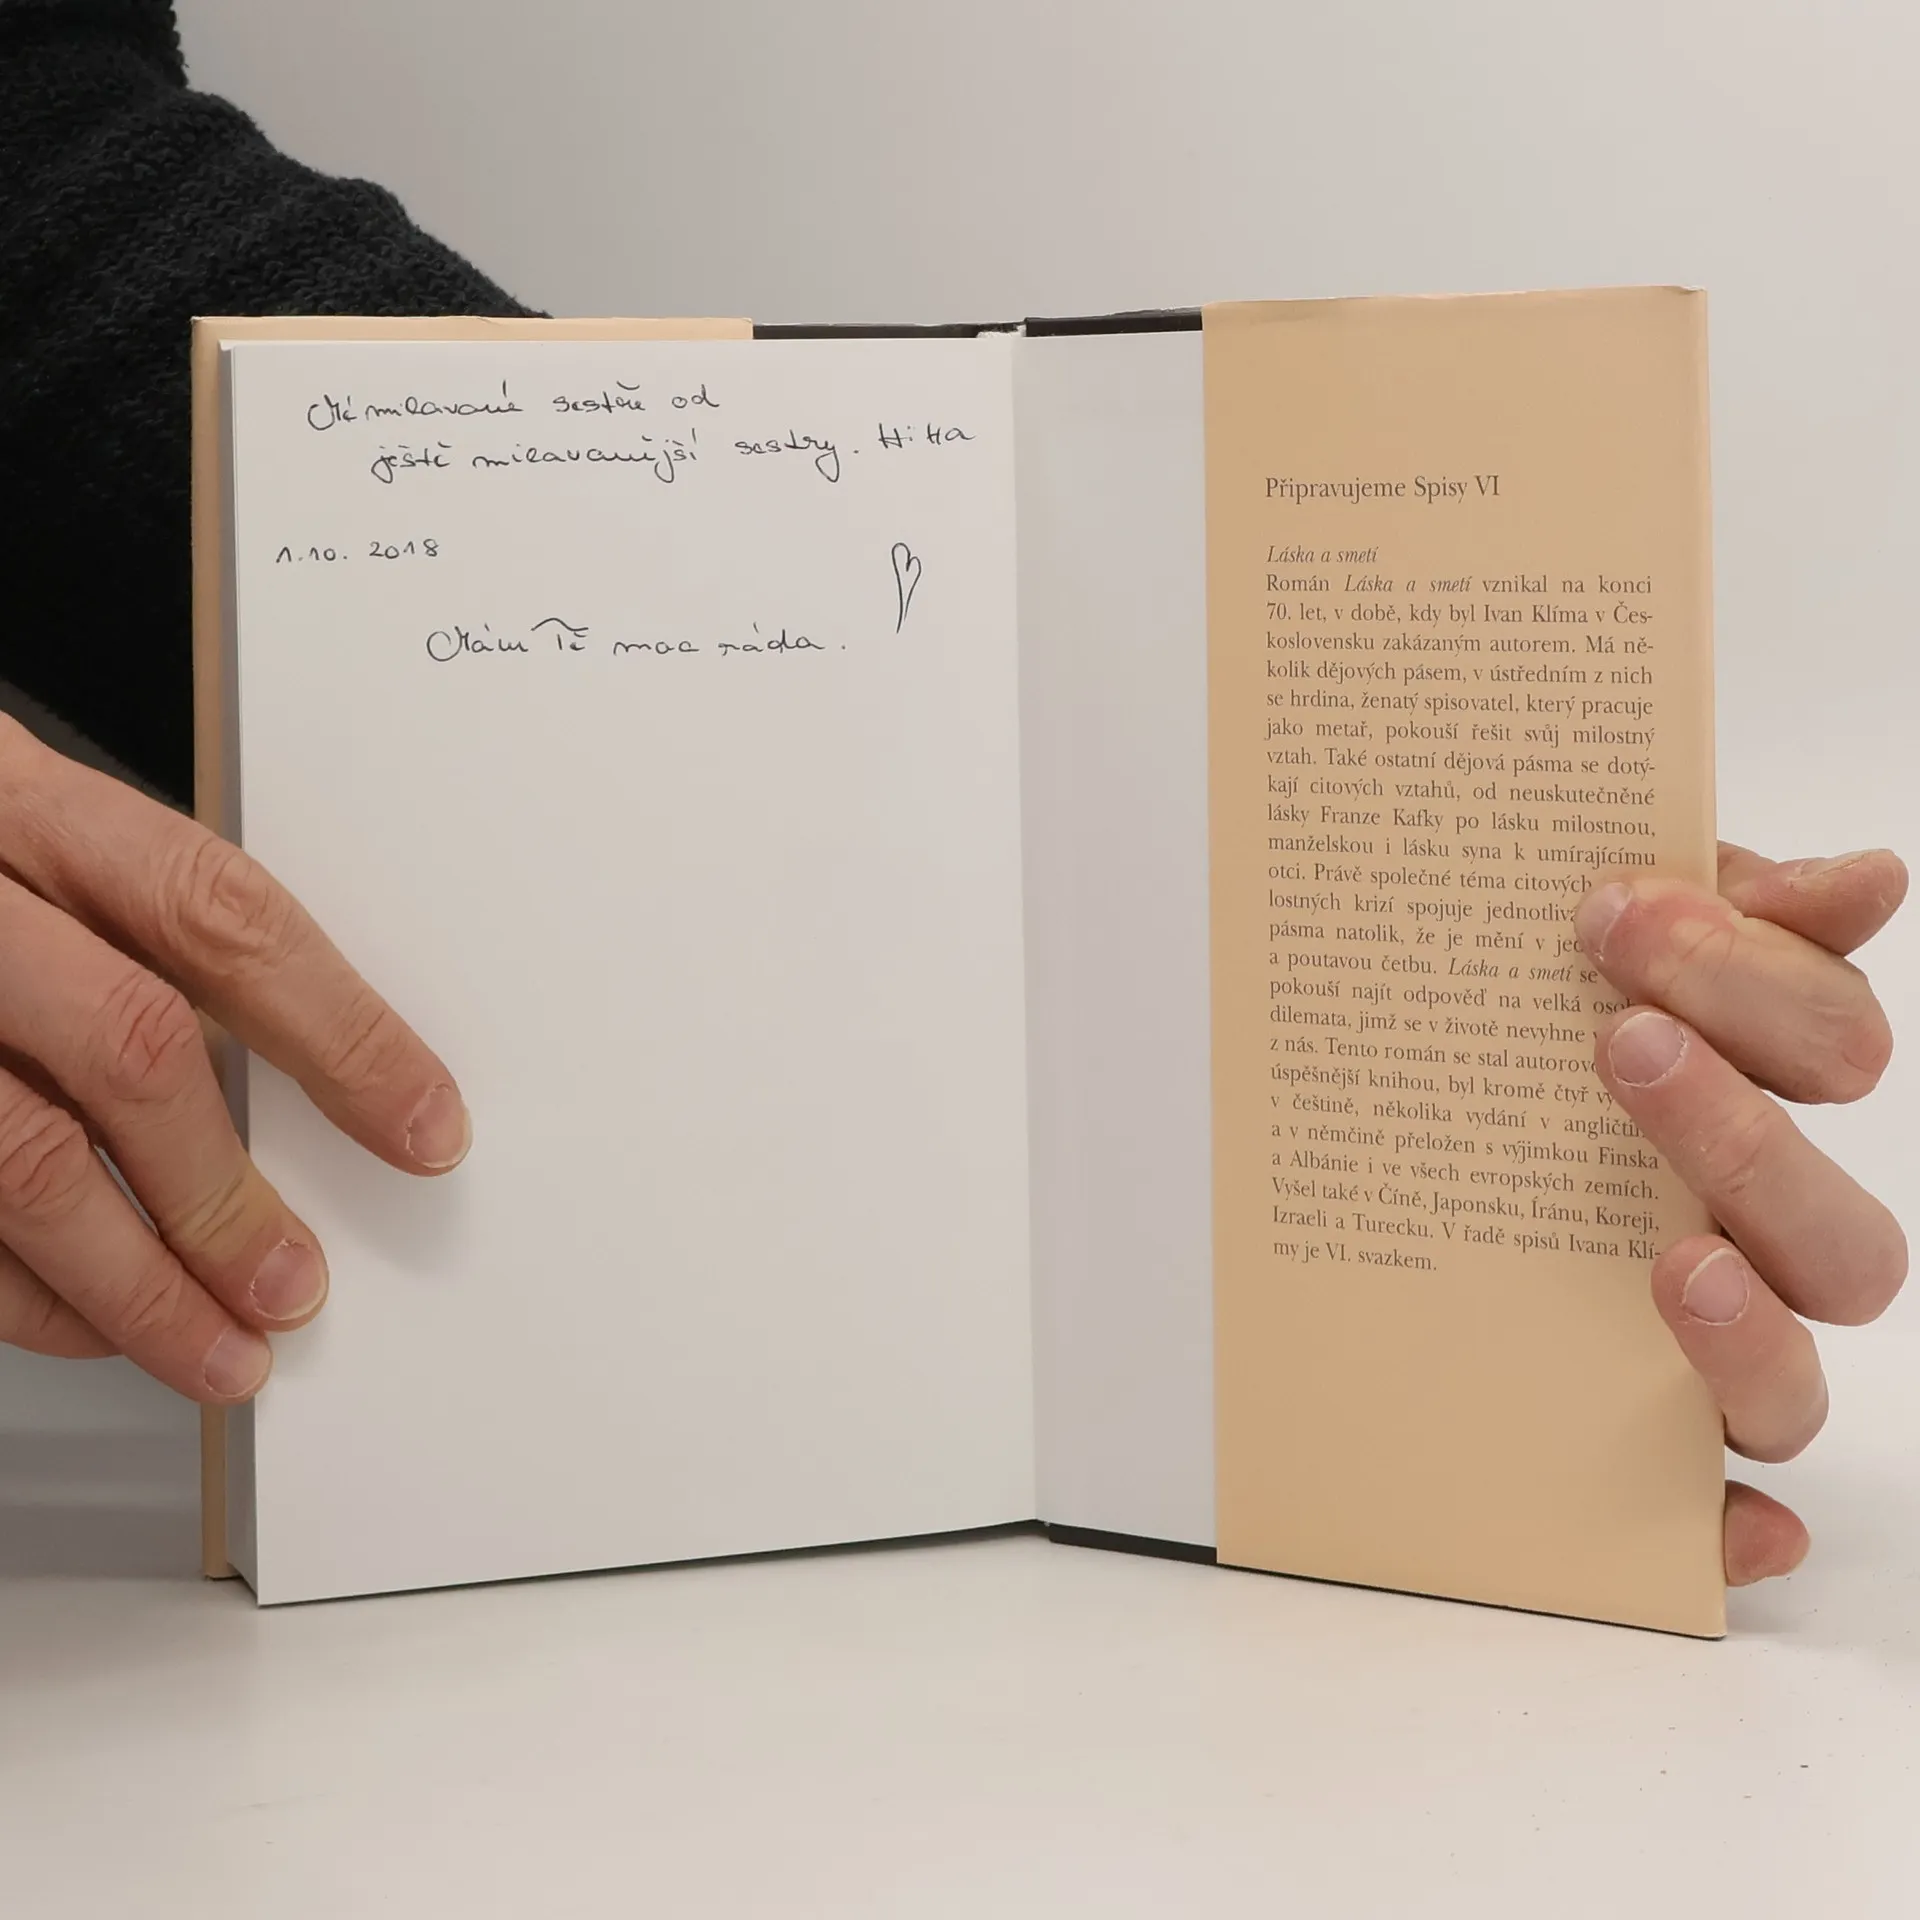 Mé milované sestře od
ještě milovanější sestry.
1.10. 2018
Mám Tě moc ráda.
Připravujeme Spisy VI
Láska a smetí
Román Láska a smetí vznikal na konci
70. let, v době, kdy byl Ivan Klíma v Čes-
koslovensku zakázaným autorem. Má ně-
kolik dějových pásem, v ústředním z nich
se hrdina, ženatý spisovatel, který pracuje
jako metař, pokouší řešit svůj milostný
vztah. Také ostatní dějová pásma se dotý-
kají citových vztahů, od neuskutečněné
lásky Franze Kafky po lásku milostnou,
manželskou i lásku syna k umírajícímu
otci. Právě společné téma citových
lostných krizí spojuje jednotlivá
pásma natolik, že je mění v
a poutavou četbu. Láska a smetí se
pokouší najít odpověď na velká
dilemata, jimž se v životě nevyhne
z nás. Tento román se stal
úspěšnější knihou, byl kromě čtyř
v češtině, několika vydání v
a v němčině přeložen s výjimkou Finska
a Albánie i ve všech evropských zemích.
Vyšel také v Číně, Japonsku, Íránu, Koreji,
Izraeli a Turecku. V řadě spisů Ivana Klí-
my je VI. svazkem.